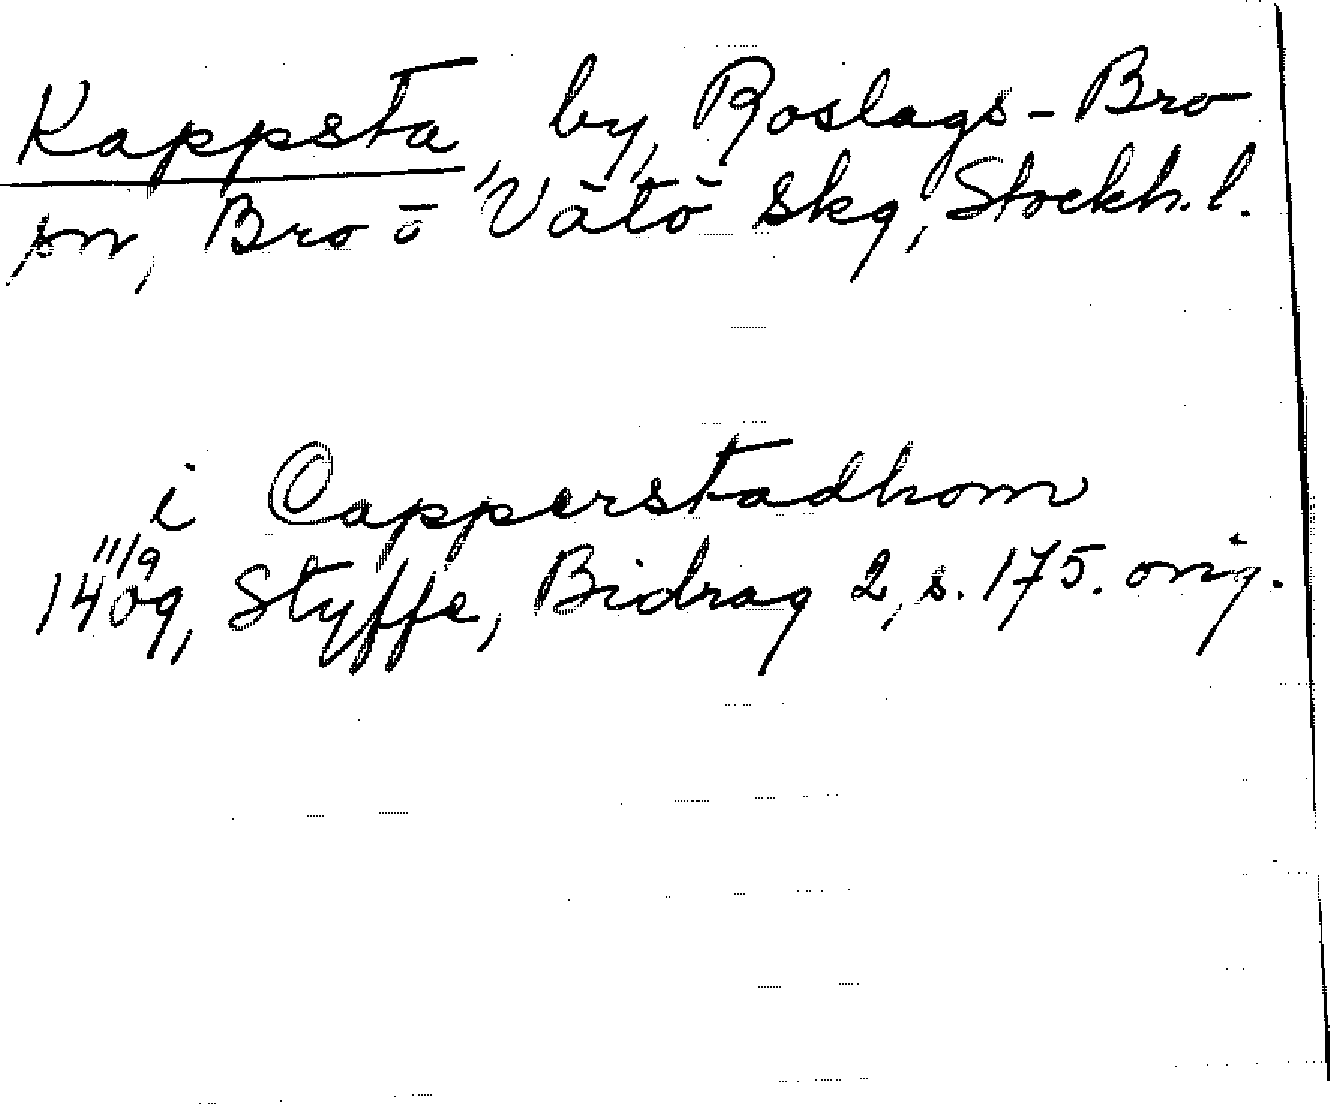 Kappsta, by, Roslags-Bro
sn, Bro ō Vätö skg, Stockh. l.
i Capperstadhom
11/9
1409, Styffe, Bidrag 2, s. 175. orig.